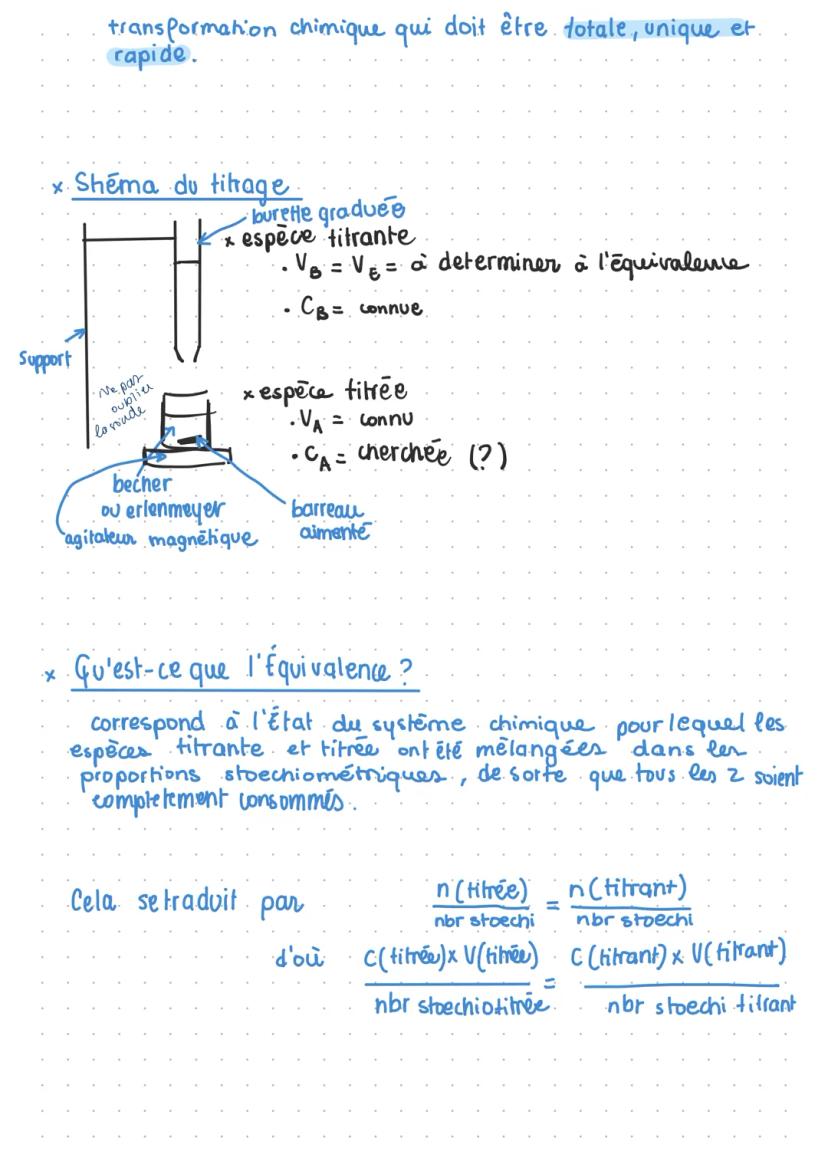 transformation chimique qui doit être totale, unique et
rapide.
x Shéma du titrage
burette graduée
x espèce titrante
. VB = VE = à determiner à l'équivalence
. CB = connue
Support
ne pas
oublier
la soude
x espèce titrée
. VA = connu
. CA = cherchée (?)
becher
ou erlenmeyer
agitateur magnétique
barreau
aimenté
x Qu'est-ce que l'Équivalence ?
correspond à l'État du système chimique pour lequel les
espèces titrante et titrée ont été mélangées dans les
proportions stoechiométriques, de sorte que tous les 2 soient
completement consommés.
Cela se traduit par n(titrée) / nbr stoechi = n(titrant) / nbr stoechi
d'où C(titrée) x V(titrée) / nbr stoechiotitrée = C(titrant) x V(titrant) / nbr stoechi titrant